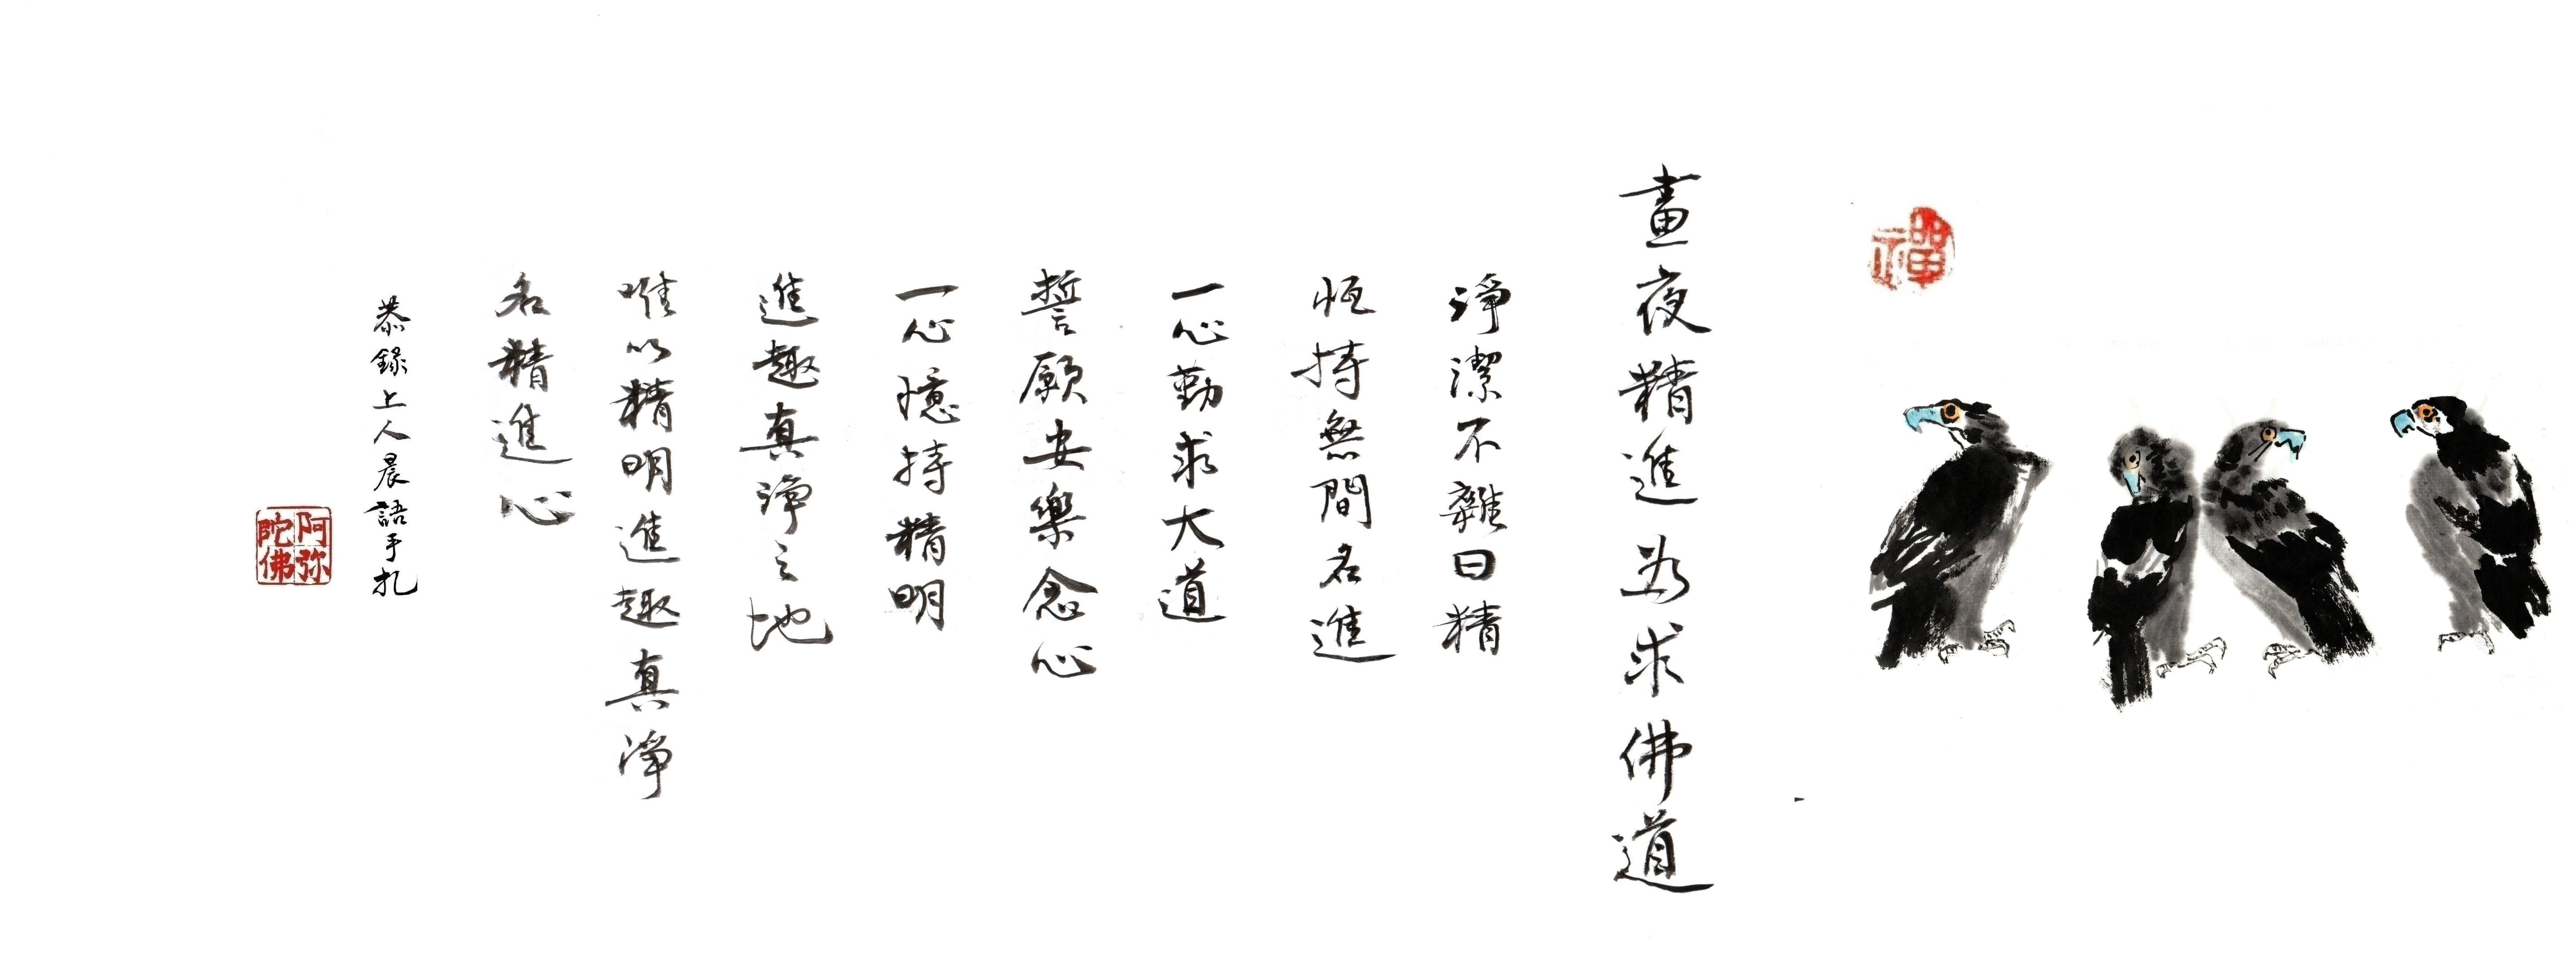 禪
晝夜精進為求佛道
淨潔不雜曰精
恆持無間名進
一心勤求大道
誓願安樂念心
一心憶持精明
進趣真淨之地
唯以精明進趣真淨
名精進心
恭錄上人晨語手札
阿弥
陀佛